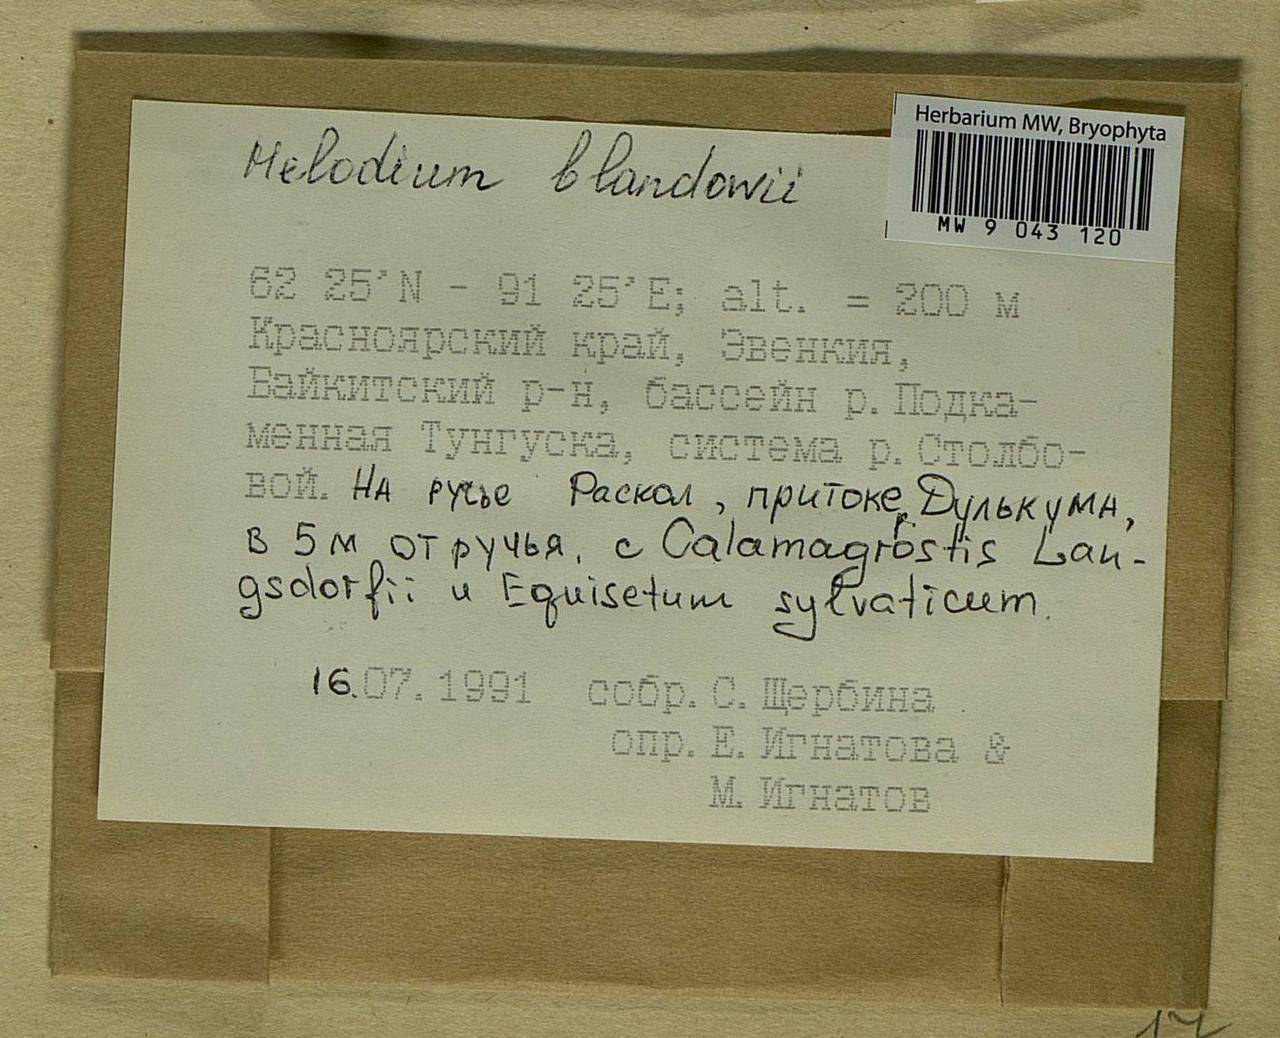 Herbarium MW, Bryophyta
MW 9 043 120
Helodium blandowii
62 25' N - 91 25' E; alt. = 200 м
Красноярский край, Эвенкия,
Байкитский р-н, бассейн р. Подка-
менная Тунгуска, система р. Столбо-
вой. На ручье Раскол, притоке р. Дулькума,
в 5 м от ручья, с Calamagrostis Lan-
gsdorfii и Equisetum sylvaticum.
16.07.1991 собр. С. Щербина
опр. Е. Игнатова &
М. Игнатов